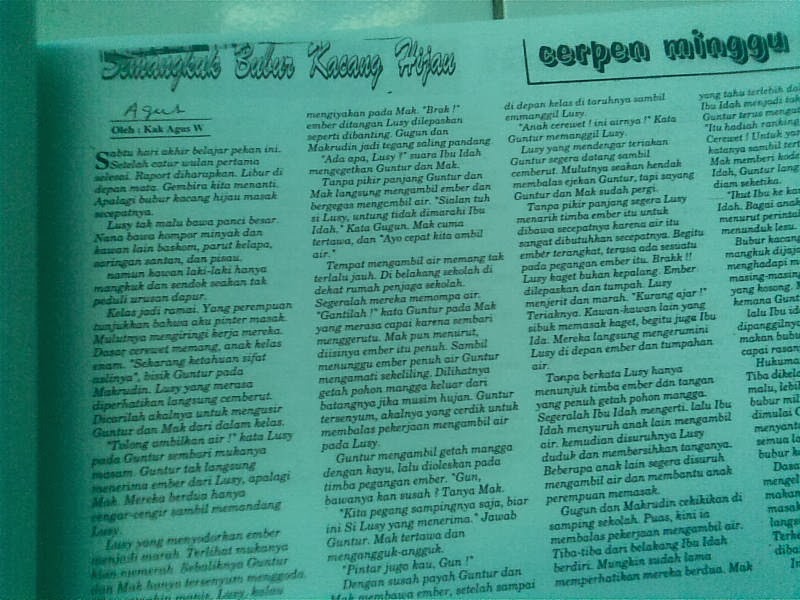 Semangkuk Bubur Kacang Hijau
cerpen minggu
Agus
Oleh : Kak Agus W
Sabtu hari akhir belajar pekan ini.
Setelah catur wulan pertama
selesai. Raport diharapkan. Libur di
depan mata. Gembira kita menanti.
Apalagi bubur kacang hijau masak
secepatnya.
Lusy tak malu bawa panci besar.
Nana bawa kompor minyak dan
kawan lain baskom, parut kelapa,
saringan santan, dan pisau.
namun kawan laki-laki hanya
mangkuk dan sendok seakan tak
peduli urusan dapur.
Kelas jadi ramai. Yang perempuan
tunjukkan bahwa aku pinter masak.
Mulutnya mengiringi kerja mereka.
Dasar cerewet memang, anak kelas
enam. "Sekarang ketahuan sifat
aslinya", bisik Guntur pada
Makrudin. Lusy yang merasa
diperhatikan langsung cemberut.
Dicarilah akalnya untuk mengusir
Guntur dan Mak dari dalam kelas.
"Tolong ambilkan air !" kata Lusy
pada Guntur sembari mukanya
masam. Guntur tak langsung
menerima ember dari Lusy, apalagi
Mak. Mereka berdua hanya
cengar-cengir sambil memandang
Lusy.
Lusy yang menyodorkan ember
menjadi marah. Terlihat mukanya
kian memerah. Sebaliknya Guntur
dan Mak hanya tersenyum menggoda.
manis, Lusy, kalau
mengiyakan pada Mak. "Brak !"
ember ditangan Lusy dilepaskan
seperti dibanting. Gugun dan
Makrudin jadi tegang saling pandang
"Ada apa, Lusy ?" suara Ibu Idah
mengegetkan Guntur dan Mak.
Tanpa pikir panjang Guntur dan
Mak langsung mengambil ember dan
bergegas mengambil air. "Sialan tuh
si Lusy, untung tidak dimarahi Ibu
Idah." Kata Gugun. Mak cuma
tertawa, dan "Ayo cepat kita ambil
air."
Tempat mengambil air memang tak
terlalu jauh. Di belakang sekolah di
dekat rumah penjaga sekolah.
Segeralah mereka memompa air.
"Gantilah !" kata Guntur pada Mak
yang merasa capai karena sembari
menggerutu. Mak pun menurut,
diisinya ember itu penuh. Sambil
menunggu ember penuh air Guntur
mengamati sekeliling. Dilihatnya
getah pohon mangga keluar dari
batangnya jika musim hujan. Guntur
tersenyum, akalnya yang cerdik untuk
membalas pekerjaan mengambil air
pada Lusy.
Guntur mengambil getah mangga
dengan kayu, lalu dioleskan pada
timba pegangan ember. "Gun,
bawanya kan susah ? Tanya Mak.
"Kita pegang sampingnya saja, biar
ini Si Lusy yang menerima." Jawab
Guntur. Mak tertawa dan
mengangguk-angguk.
"Pintar juga kau, Gun !"
Dengan susah payah Guntur dan
Mak membawa ember, setelah sampai
di depan kelas di taruhnya sambil
emmanggil Lusy.
"Anak cerewet ! ini airnya !" Kata
Guntur memanggil Lusy.
Lusy yang mendengar teriakan
Guntur segera datang sambil
cemberut. Mulutnya seakan hendak
membalas ejekan Guntur, tapi sayang
Guntur dan Mak sudah pergi.
Tanpa pikir panjang segera Lusy
menarik timba ember itu untuk
dibawa secepatnya karena air itu
sangat dibutuhkan secepatnya. Begitu
ember terangkat, terasa ada sesuatu
pada pegangan ember itu. Brakk !!
Lusy kaget bukan kepalang. Ember
dilepaskan dan tumpah. Lusy
menjerit dan marah. "Kurang ajar !"
Teriaknya. Kawan-kawan lain yang
sibuk memasak kaget, begitu juga Ibu
Ida. Mereka langsung mengerumini
Lusy di depan ember dan tumpahan
air.
Tanpa berkata Lusy hanya
menunjuk timba ember ddn tangan
yang penuh getah pohon mangga.
Segeralah Ibu Idah mengerti. lalu Ibu
Idah menyuruh anak lain mengambil
air. kemudian disuruhnya Lusy
duduk dan membersihkan tanganya.
Beberapa anak lain segera disuruh
mengambil air dan membantu anak
perempuan memasak.
Gugun dan Makrudin cekikikan di
samping sekolah. Puas, kini ia
membalas pekerjaan mengambil air.
Tiba-tiba dari belakang Ibu Idah
berdiri. Mungkin sudah lama
memperhatikan mereka berdua. Mak
yang tahu terlebih
Ibu Idah menjadi
Guntur terus
"Itu hadiah ranking
Cerewet ! Untuk
katanya sambil
Mak memberi
Idah, Guntur
diam seketika.
"Ikut Ibu ke
Idah. Bagai anak
menurut
menunduk lesu.
Bubur kacang
mangkuk
menghadapi
masing-masing
yang kosong.
kemana
lalu Ibu
dipanggilnya
makan bubur
capai
Hukuma
Tiba
malu, lebih
bubur
dimulai
menyant
semua
bubur
Dasa
mengel
makan
masak
langs
Terhe
diba